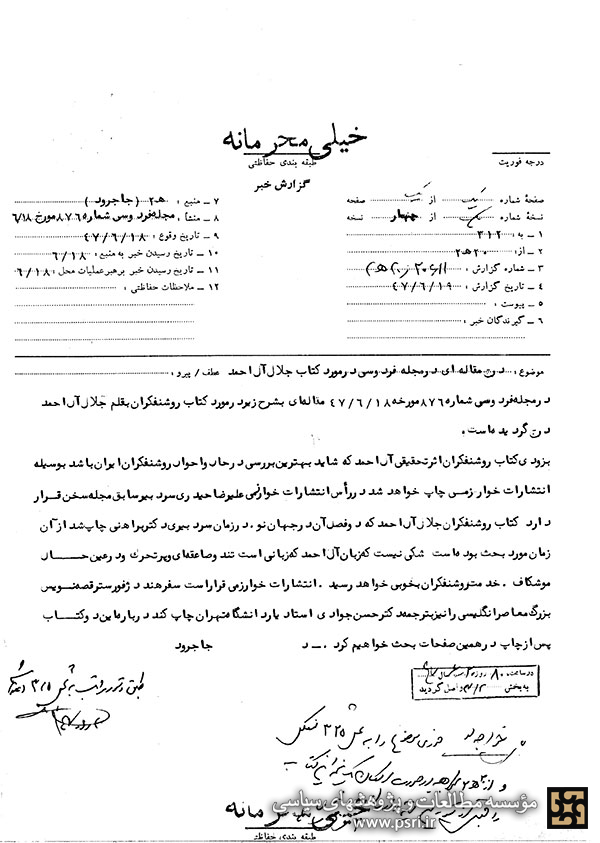 خیلی محرمانه
درجه فوریت
طبقه بندی حفاظتی
گزارش خبر
صفحهٔ شماره یک از یک صفحه
نسخهٔ شماره از چهار نسخه
۱ ــ به: ۳۱۲
۲ ــ از: ۲۰ ه‍ ۲
۳ ــ شماره گزارش:
۴ ــ تاریخ گزارش: ۴۷/۶/۱۹
۵ ــ پیوست:
۶ ــ گیرندگان خبر:
۷ ــ منبع: (جاجرود)
۸ ــ منشأ: مجله فردوسی شماره ۸۷۶ مورخ ۶/۱۸
۹ ــ تاریخ وقوع: ۴۷/۶/۱۸
۱۰ ــ تاریخ رسیدن خبر به منبع: ۶/۱۸
۱۱ ــ تاریخ رسیدن خبر برهبر عملیات محل: ۶/۱۸
۱۲ ــ ملاحظات حفاظتی:
موضوع: درج مقاله ای در مجله فردوسی در مورد کتاب جلال آل احمد عطف / پیرو:
در مجله فردوسی شماره ۸۷۶ مورخه ۴۷/۶/۱۸ مقاله ای بشرح زیر در مورد کتاب روشنفکران بقلم جلال آل احمد
درج گردیده است.
بزودی کتاب روشنفکران اثر تحقیقی آل احمد که شاید بهترین بررسی در حال و احوال روشنفکران ایران باشد بوسیله
انتشارات خوارزمی چاپ خواهد شد در رأس انتشارات خوارزمی علیرضا حیدری سردبیر سابق مجله سخن قرار
دارد کتاب روشنفکران جلال آل احمد که دو فصل آن در جهان نو، در زمان سردبیری دکتر براهنی چاپ شد از آن
زمان مورد بحث بوده است شکی نیست که زبان آل احمد که زبانی است تند و صاعقه ای و پر تحرک و در عین حال
موشکاف. خدمت روشنفکران بخوبی خواهد رسید. انتشارات خوارزمی قرار است سفر هند ژ فورستر قصه نویس
بزرگ معاصر انگلیسی را نیز بترجمه دکتر حسن جوادی استاد یار دانشگاه تهران چاپ کند درباره این دو کتاب
پس از چاپ در همین صفحات بحث خواهیم کرد. ــ د جاجرود
در ساعت ۸۰ روز
به بخش ۳۱۲ واصل گردید
مؤسسه مطالعات و پژوهشهای سیاسی
www.psri.ir
خیلی محرمانه
طبقه بندی حفاظتی